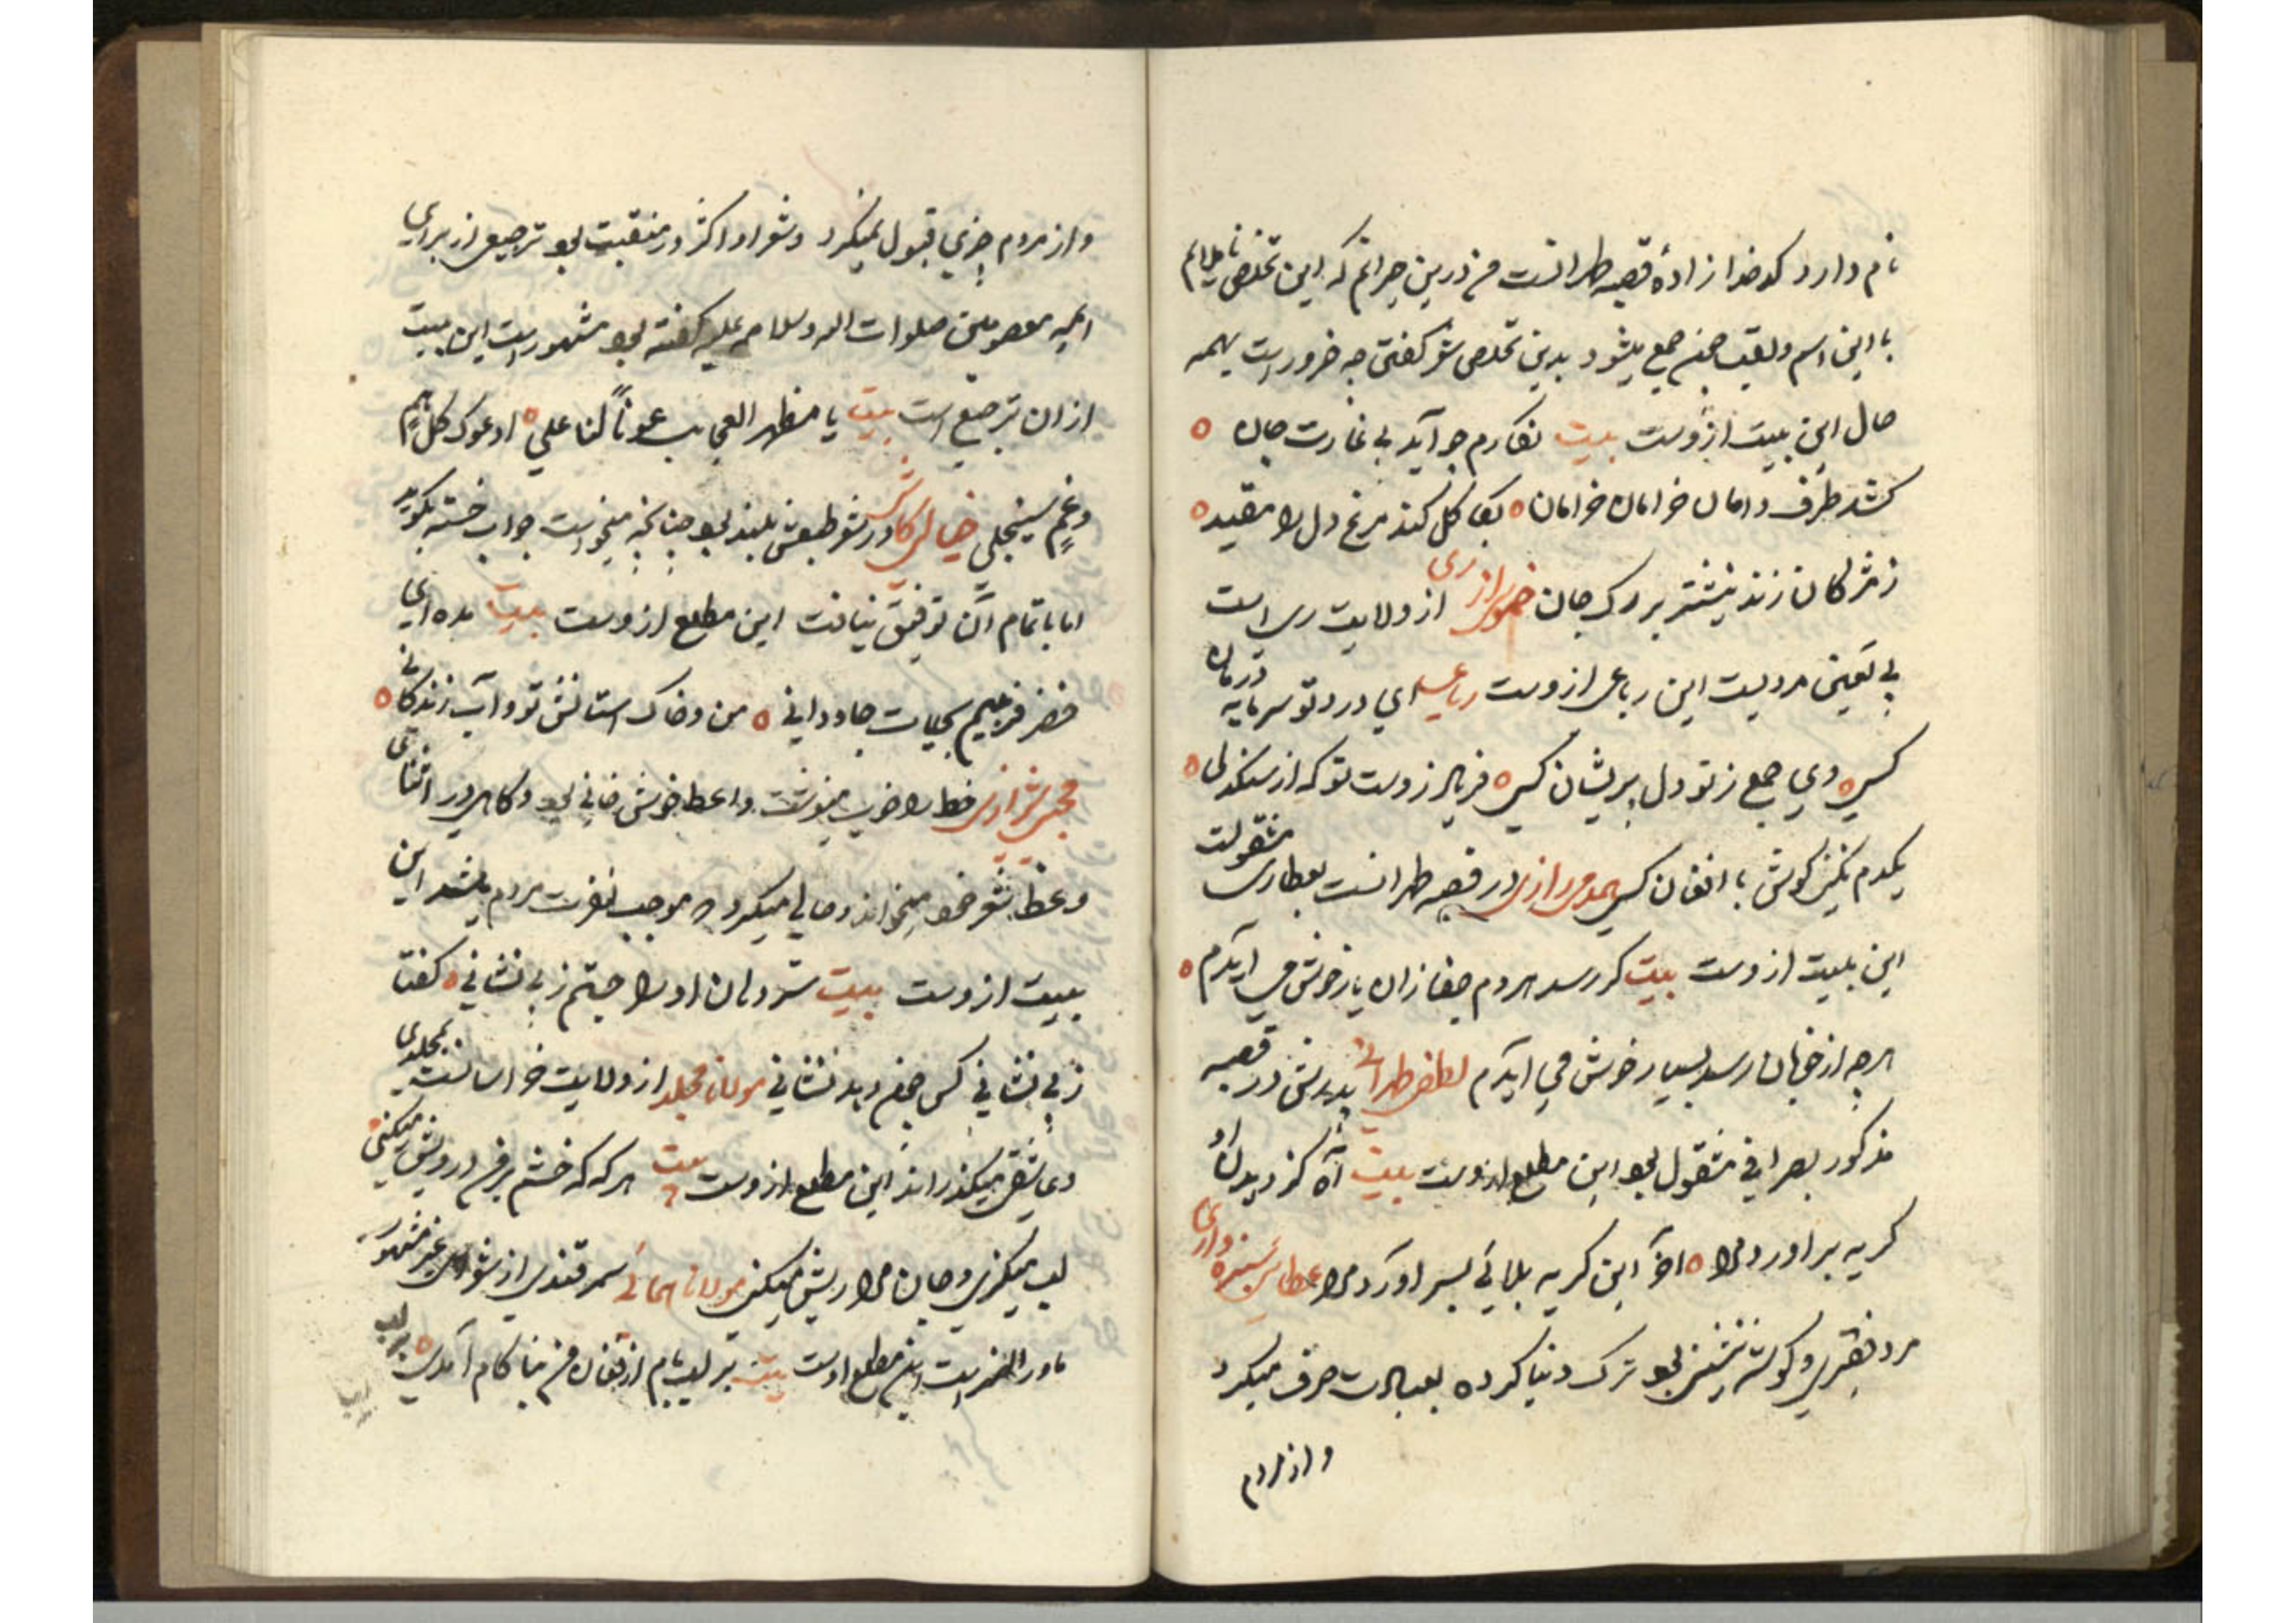 نام دارد کدخدازادهٔ قصبه طهرانست من درین حیرانم که این تخلص ناملایم
با این اسم و لقب چون جمع میشود بدین تخلص شعر گفتن چه ضرور است بهمه
حال این بیت ازوست بیت نگارم چو آید بی غارت جان
کشد طرف دامان خرامان خرامان کند مرغ دل را مقید
ز مژگان زند نیشتر بر رگ جان رازی از ولایت ری است
بی تعین مردیست این رباعی ازوست رباعیه ای درد تو سرمایه درمان
کسی وی جمع ز تو دل پریشان کسی فریاد ز دست تو که از سنگدلی
یکدم نکنی گوش با افغان کسی رازی در قصبه طهرانست بعطاری مشغولست
این بیت ازوست بیت گر رسد هر دم جفا زان یار خوش می آیدم
هرچه از خوبان رسد بسیار خوش می آیدم لطفی طهرانی پدرش در قصبه
مذکور بصرافی مشغول بود این مطلع ازوست بیت آه کز دیدن او
گریه برآورد مرا آخر این گریه بلائی بسر آورد مرا عطائی سبزواری
مرد فقیری و گوشه نشین بود ترک دنیا کرده بعبادت صرف میکرد
و از مردم
و از مردم چیزی قبول نمیکرد و شعر او اکثر در منقبت بود ترجیعی از برای
ایمه معصومین صلوات الله و سلامه علیه گفته بود مشهور است این بیت
از آن ترجیع است بیت یا مظهر العجایب عوناً لنا علی ادعوک کل همٍ
و غمٍ سینجلی خیالی کاشی در شعر طبعش بلند بود چنانچه میخواست جواب خمسه بگوید
اما باتمام آن توفیق نیافت این مطلع ازوست بیت مده ای
خضر فریبم بحیات جاودانی من و خاک آستانش تو و آب زندگانی
محبی شیرازی خط را خوب مینوشت واعظ خوش خوانی بود و گاهی در اثنای
وعظ شعر خود میخواند و حالی میکرد که موجب نفرت مردم میشد این
بیت ازوست بیت سر دهان او را جستم ز بی نشانی گفتا
ز بی نشانی کس چون دهد نشانی مولانا مجلد از ولایت خراسانست بمجلدی
و عاشقی میگذراند این مطلع ازوست بیت هر که که خشم بر من درویش میکنی
لب میگزی و جان مرا ریش میکنی مولانا همائی سمرقندی از شعرای غیر مشهور
ماورالنهر است این مطلع اوست بیت بر لب بام از فغان من بنا کام آمدی
بر لب